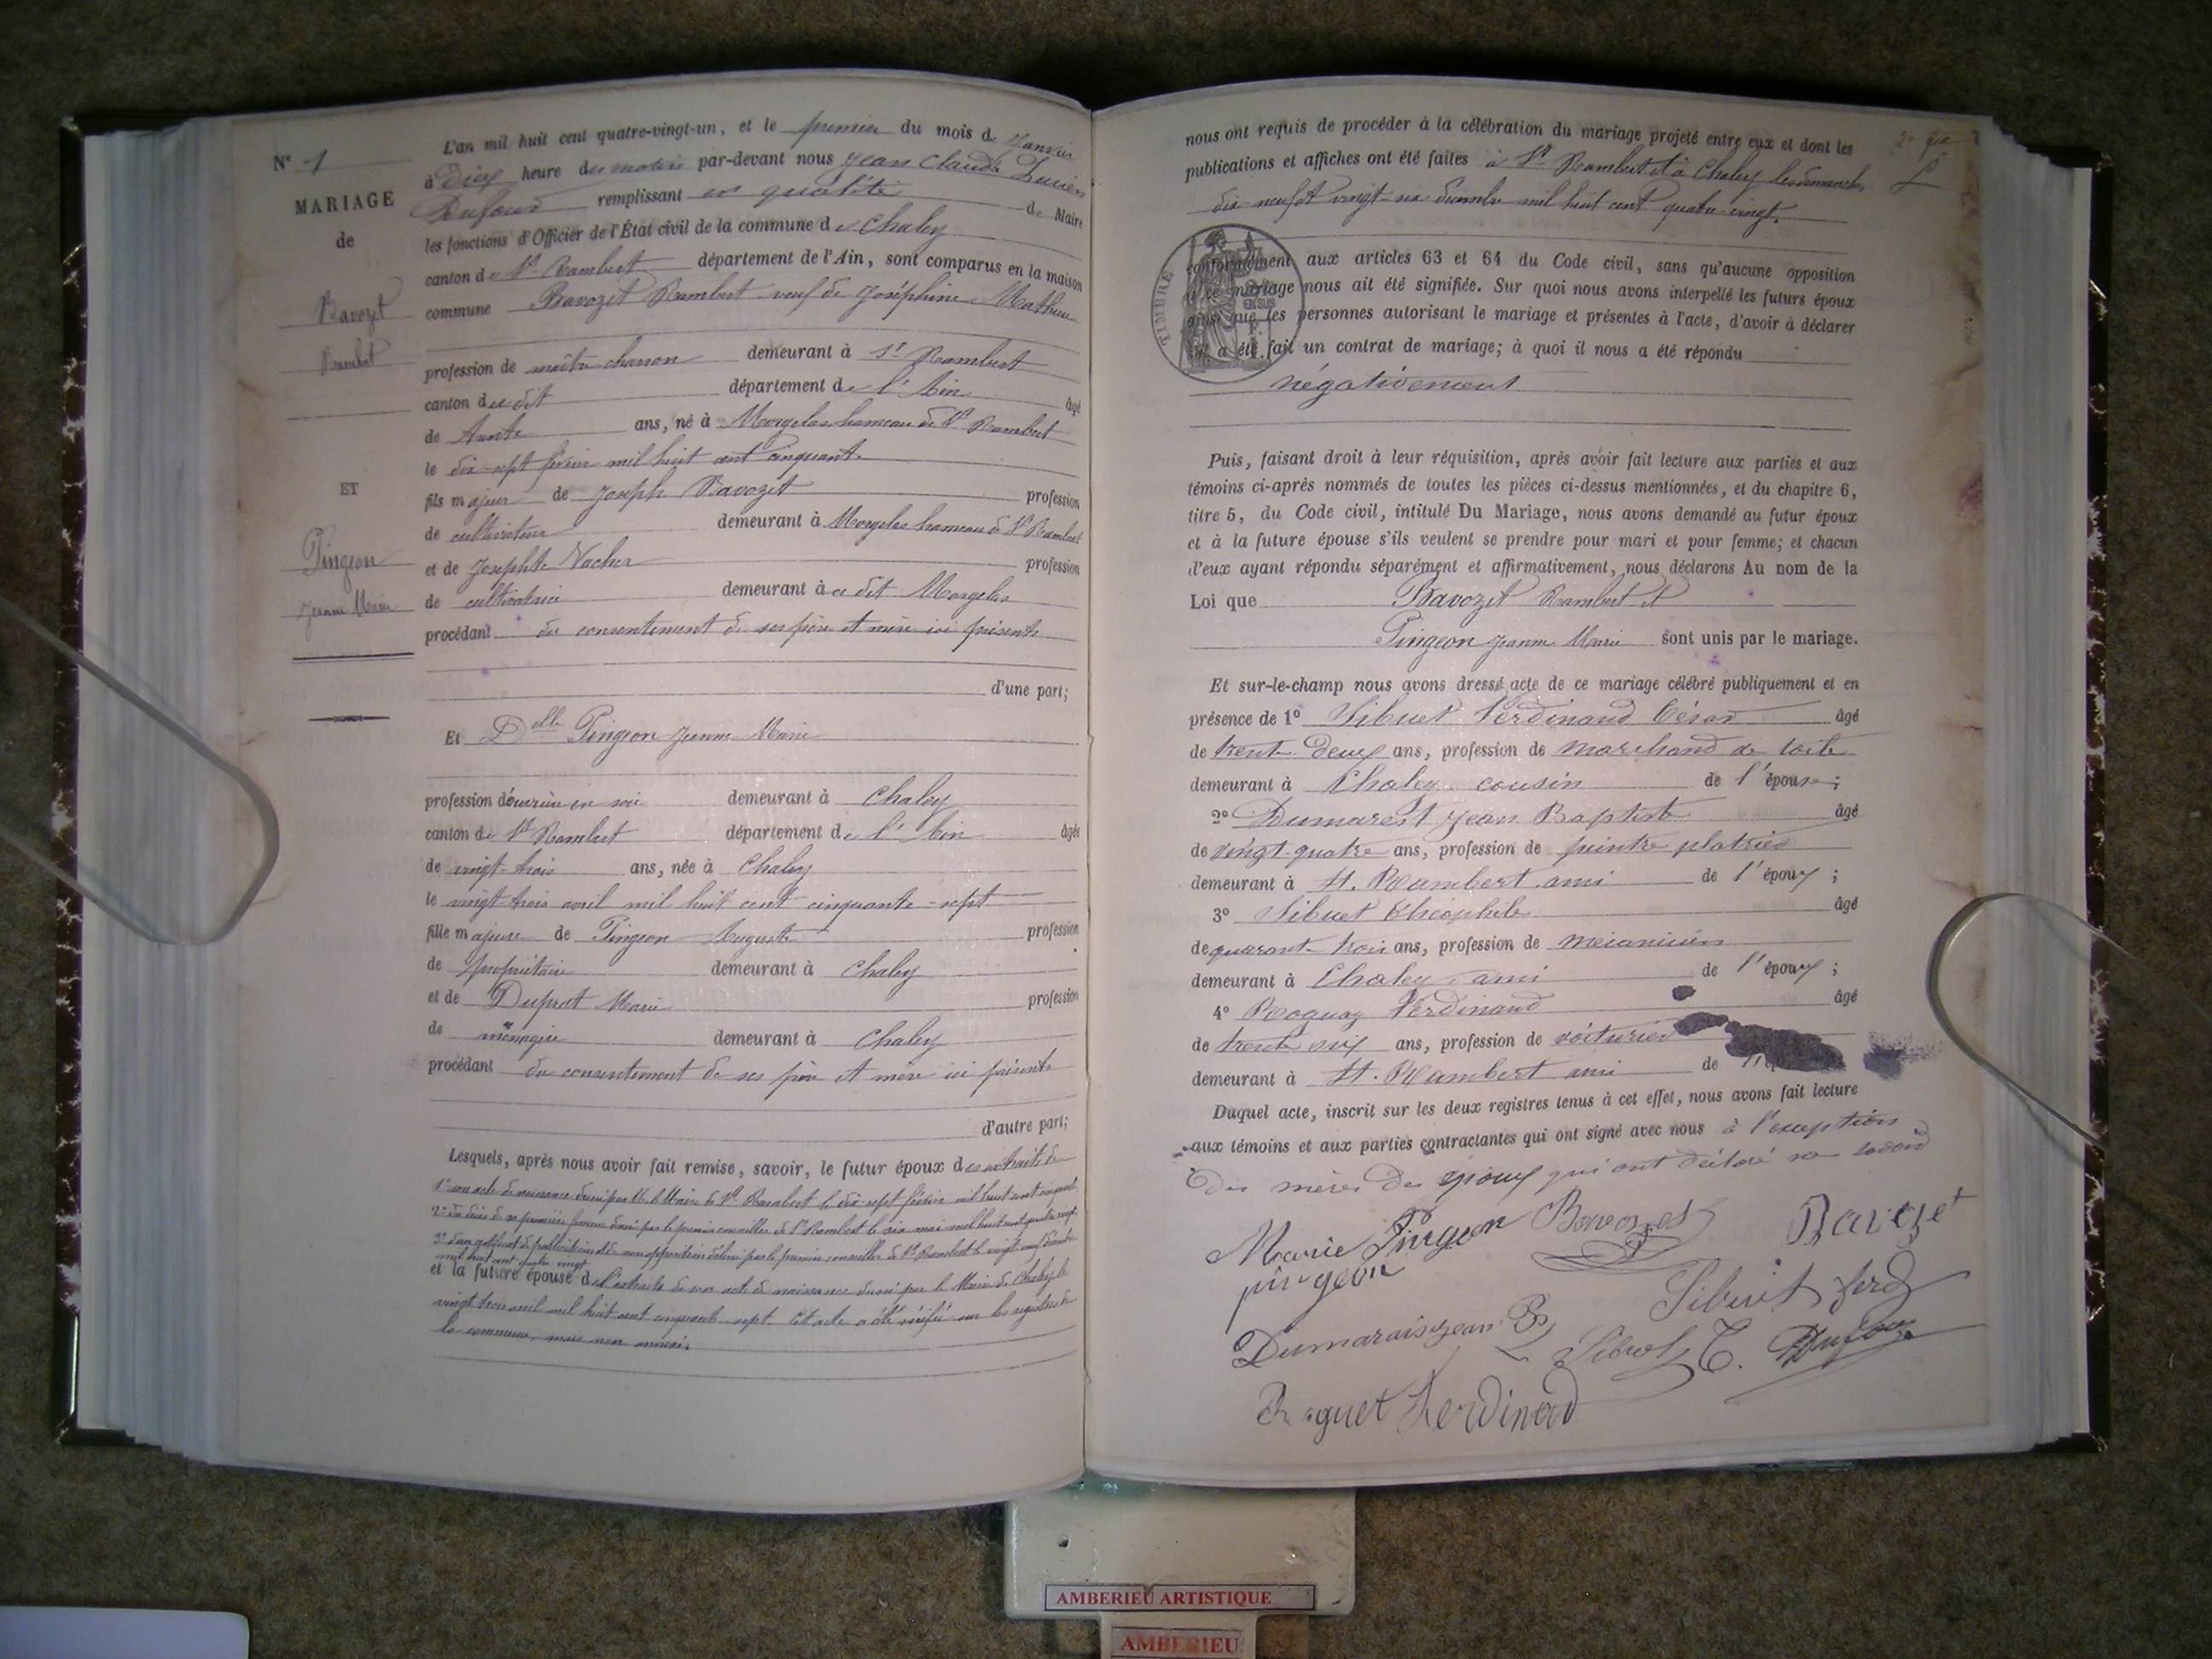 N° 1
MARIAGE
de
Bavozet
Rambert
ET
Pingeon
Jeanne Marie
L'an mil huit cent quatre-vingt-un, et le premier du mois de Janvier
à Dix heure du matin par-devant nous Jean Claude Lucien
Dufour remplissant en qualité de Maire
les fonctions d'Officier de l'État civil de la commune de Chaley
canton de St Rambert département de l'Ain, sont comparus en la maison
commune Bavozet Rambert veuf de Joséphine Mathieu
profession de maître charron demeurant à St Rambert
canton du dit département de l'Ain âgé
de trente ans, né à Morgelas hameau de St Rambert
le dix-sept février mil huit cent cinquante
fils majeur de Joseph Bavozet profession
de cultivateur demeurant à Morgelas hameau de St Rambert
et de Josephte Vacher profession
de cultivatrice demeurant à ce dit Morgelas
procédant du consentement de ses père et mère ici présents
d'une part;
Et Delle Pingeon Jeanne Marie
profession d'ouvrière en soie demeurant à Chaley
canton de St Rambert département de l'Ain âgée
de vingt-trois ans, née à Chaley
le vingt trois avril mil huit cent cinquante-sept
fille majeure de Pingeon Auguste profession
de propriétaire demeurant à Chaley
et de Duprat Marie profession
de ménagère demeurant à Chaley
procédant du consentement de ses père et mère ici présents
d'autre part;
Lesquels, après nous avoir fait remise, savoir, le futur époux des extraits de
1° son acte de naissance donné par M. le Maire de St Rambert le dix-sept février mil huit cent cinquante
2° du décès de sa première femme donné par le premier conseiller de St Rambert le six mai mil huit cent quatre vingt
3° d'un certificat de publications et de non opposition délivré par le premier conseiller de St Rambert le vingt neuf décembre
mil huit cent quatre vingt
et la future épouse de l'extrait de son acte de naissance donné par le Maire de Chaley le
vingt trois avril mil huit cent cinquante sept. Cet acte a été vérifié sur les registres de
la commune, mais non annexé.
nous ont requis de procéder à la célébration du mariage projeté entre eux et dont les
publications et affiches ont été faites à St Rambert et à Chaley les dimanches
dix-neuf et vingt-six décembre mil huit cent quatre-vingt.
TIMBRE
conformément aux articles 63 et 64 du Code civil, sans qu'aucune opposition
à ce mariage nous ait été signifiée. Sur quoi nous avons interpellé les futurs époux
ainsi que les personnes autorisant le mariage et présentes à l'acte, d'avoir à déclarer
s'il a été fait un contrat de mariage; à quoi il nous a été répondu
négativement
Puis, faisant droit à leur réquisition, après avoir fait lecture aux parties et aux
témoins ci-après nommés de toutes les pièces ci-dessus mentionnées, et du chapitre 6,
titre 5, du Code civil, intitulé Du Mariage, nous avons demandé au futur époux
et à la future épouse s'ils veulent se prendre pour mari et pour femme; et chacun
d'eux ayant répondu séparément et affirmativement, nous déclarons Au nom de la
Loi que Bavozet Rambert et
Pingeon Jeanne Marie sont unis par le mariage.
Et sur-le-champ nous avons dressé acte de ce mariage célébré publiquement et en
présence de 1° Sibuet Ferdinand César âgé
de trente-deux ans, profession de marchand de toile
demeurant à Chaley cousin de l'épouse;
2° Dumarest Jean Baptiste âgé
de vingt-quatre ans, profession de peintre platrier
demeurant à St. Rambert ami de l'époux;
3° Sibuet Théophile âgé
de quarante trois ans, profession de mécanicien
demeurant à Chaley ami de l'époux;
4° Roguay Ferdinand âgé
de trente six ans, profession de voiturier
demeurant à St. Rambert ami de l'
Duquel acte, inscrit sur les deux registres tenus à cet effet, nous avons fait lecture
aux témoins et aux parties contractantes qui ont signé avec nous à l'exception
des mères des époux qui ont déclaré ne savoir
Marie Pingeon Bavozet Bavozet
pingeon Sibuet ferd
Dumarais jean B Sibuet T. Dufour
Roguet Ferdinand
AMBERIEU ARTISTIQUE
AMBERIEU